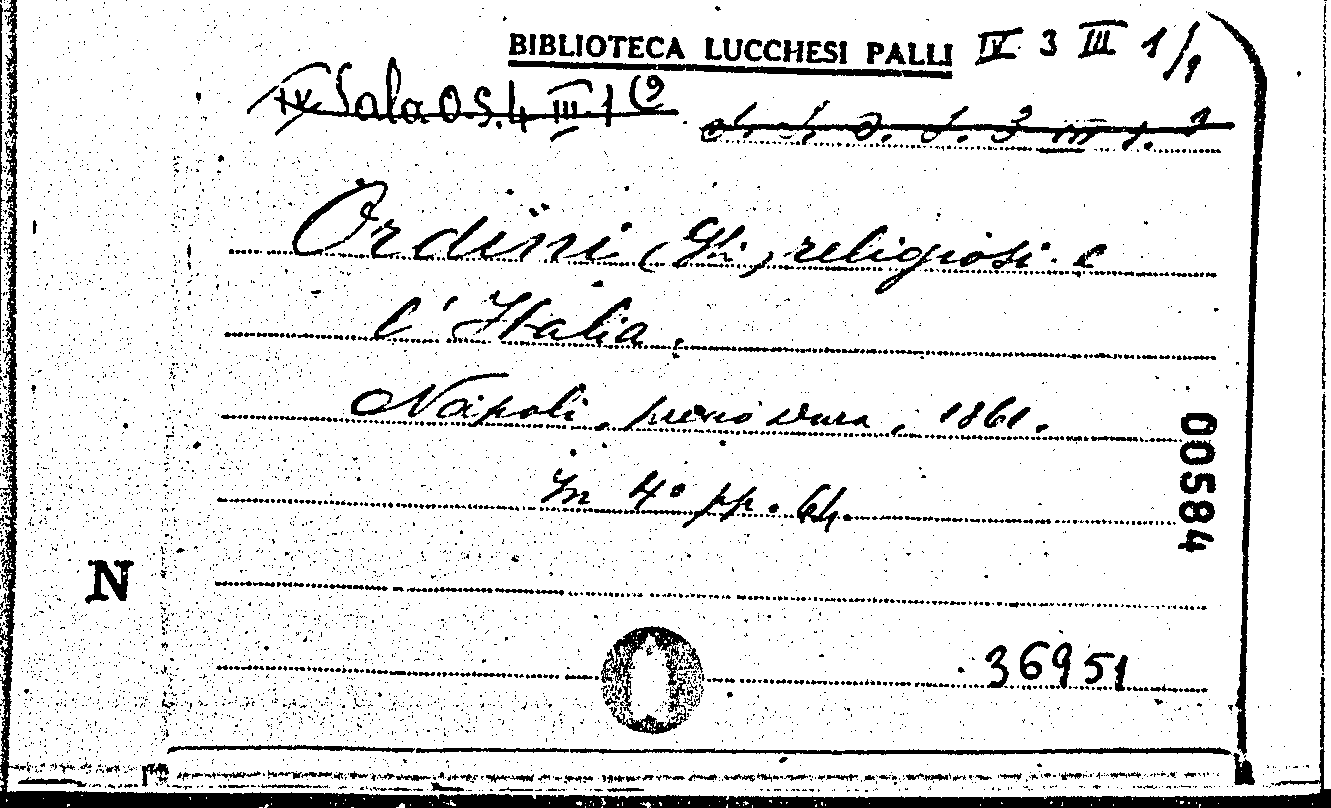 BIBLIOTECA LUCCHESI PALLI IV 3 III 1/9
IV Sala O.S.4 III.1 (9
Ordini (Gli) religiosi e
l'Italia.
Napoli, 1861.
In 4° pp. 64.
00584
N
36951